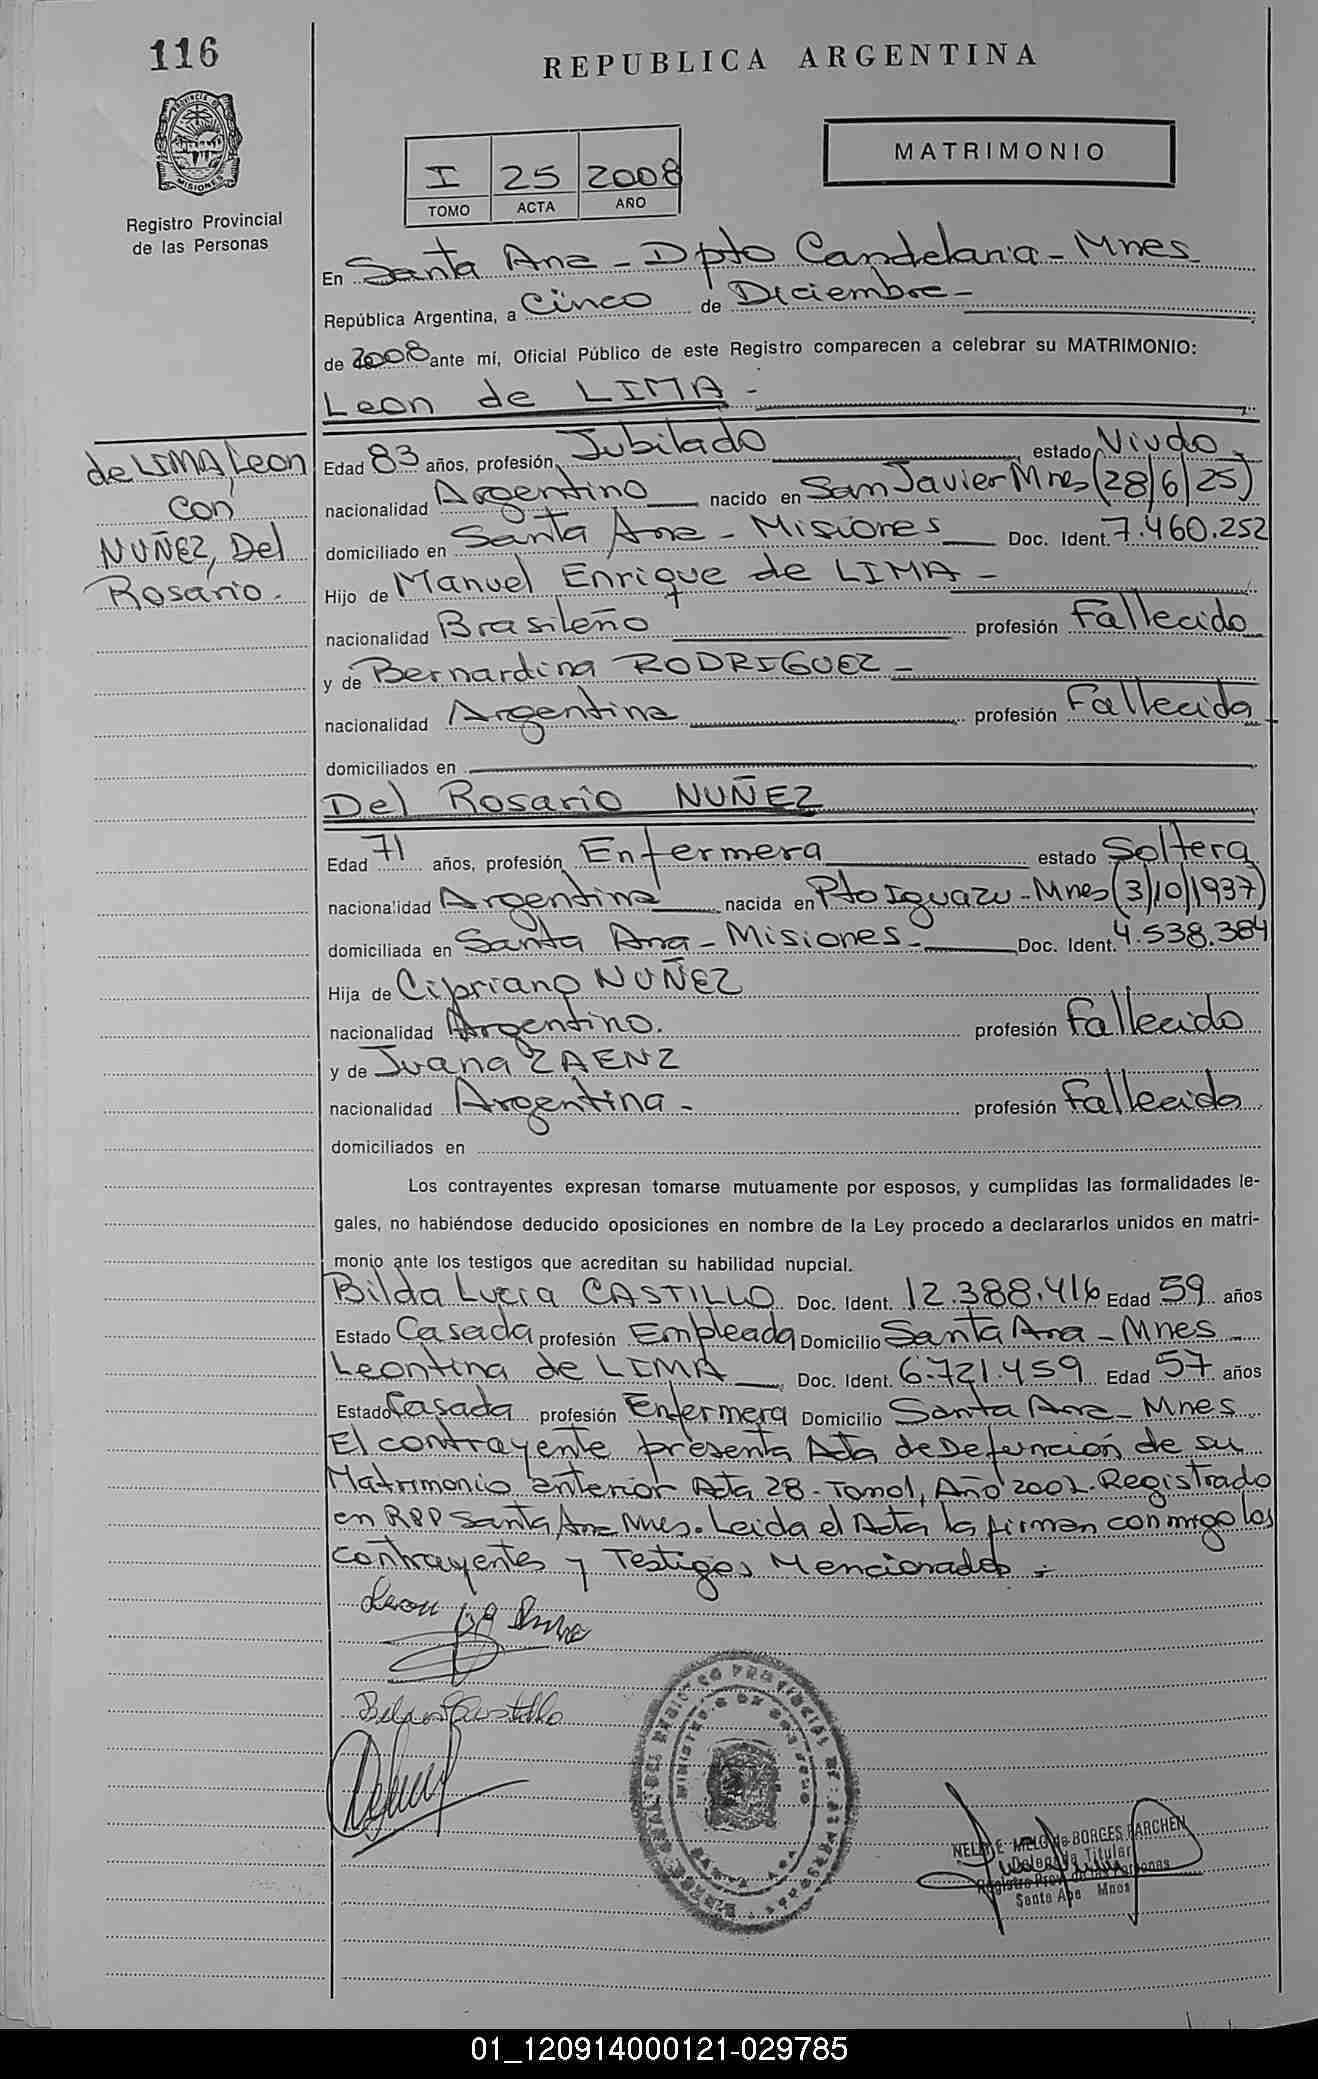 116
REPUBLICA ARGENTINA
PROVINCIA DE
MISIONES
Registro Provincial
de las Personas
I 25 2008
TOMO ACTA AÑO
MATRIMONIO
En Santa Ana - Dpto Candelaria - Mnes
República Argentina, a Cinco de Diciembre -
de 2008 ante mí, Oficial Público de este Registro comparecen a celebrar su MATRIMONIO:
Leon de LIMA -
de LIMA, Leon
con
NUÑEZ, Del
Rosario.
Edad 83 años, profesión Jubilado estado Viudo
nacionalidad Argentino nacido en San Javier Mnes (28/6/25)
domiciliado en Santa Ana - Misiones Doc. Ident. 7.460.252
Hijo de Manuel Enrique de LIMA -
nacionalidad Brasileño profesión Fallecido
y de Bernardina RODRIGUEZ -
nacionalidad Argentina profesión Fallecida
domiciliados en
Del Rosario NUÑEZ
Edad 71 años, profesión Enfermera estado Soltera
nacionalidad Argentina nacida en Pto Iguazu - Mnes (3/10/1937)
domiciliada en Santa Ana - Misiones - Doc. Ident. 4.538.384
Hija de Cipriano NUÑEZ
nacionalidad Argentino. profesión Fallecido
y de Juana ZAENZ
nacionalidad Argentina - profesión Fallecida
domiciliados en
Los contrayentes expresan tomarse mutuamente por esposos, y cumplidas las formalidades le-
gales, no habiéndose deducido oposiciones en nombre de la Ley procedo a declararlos unidos en matri-
monio ante los testigos que acreditan su habilidad nupcial.
Bilda Lucia CASTILLO Doc. Ident. 12.388.416 Edad 59 años
Estado Casada profesión Empleada Domicilio Santa Ana - Mnes
Leontina de LIMA Doc. Ident. 6.721.459 Edad 57 años
Estado Casada profesión Enfermera Domicilio Santa Ana - Mnes
El contrayente presenta Acta de Defunción de su
Matrimonio anterior Acta 28 - Tomo 1, Año 2002. Registrado
en RPP Santa Ana Mnes. Leida el Acta la firman conmigo los
contrayentes y Testigos Mencionados -
Leon de Lima
Castillo
NELI E. MELO de BORGES PARCHEN
Delegada Titular
Registro Prov. de las Personas
Santa Ana Mnes
01_120914000121-029785